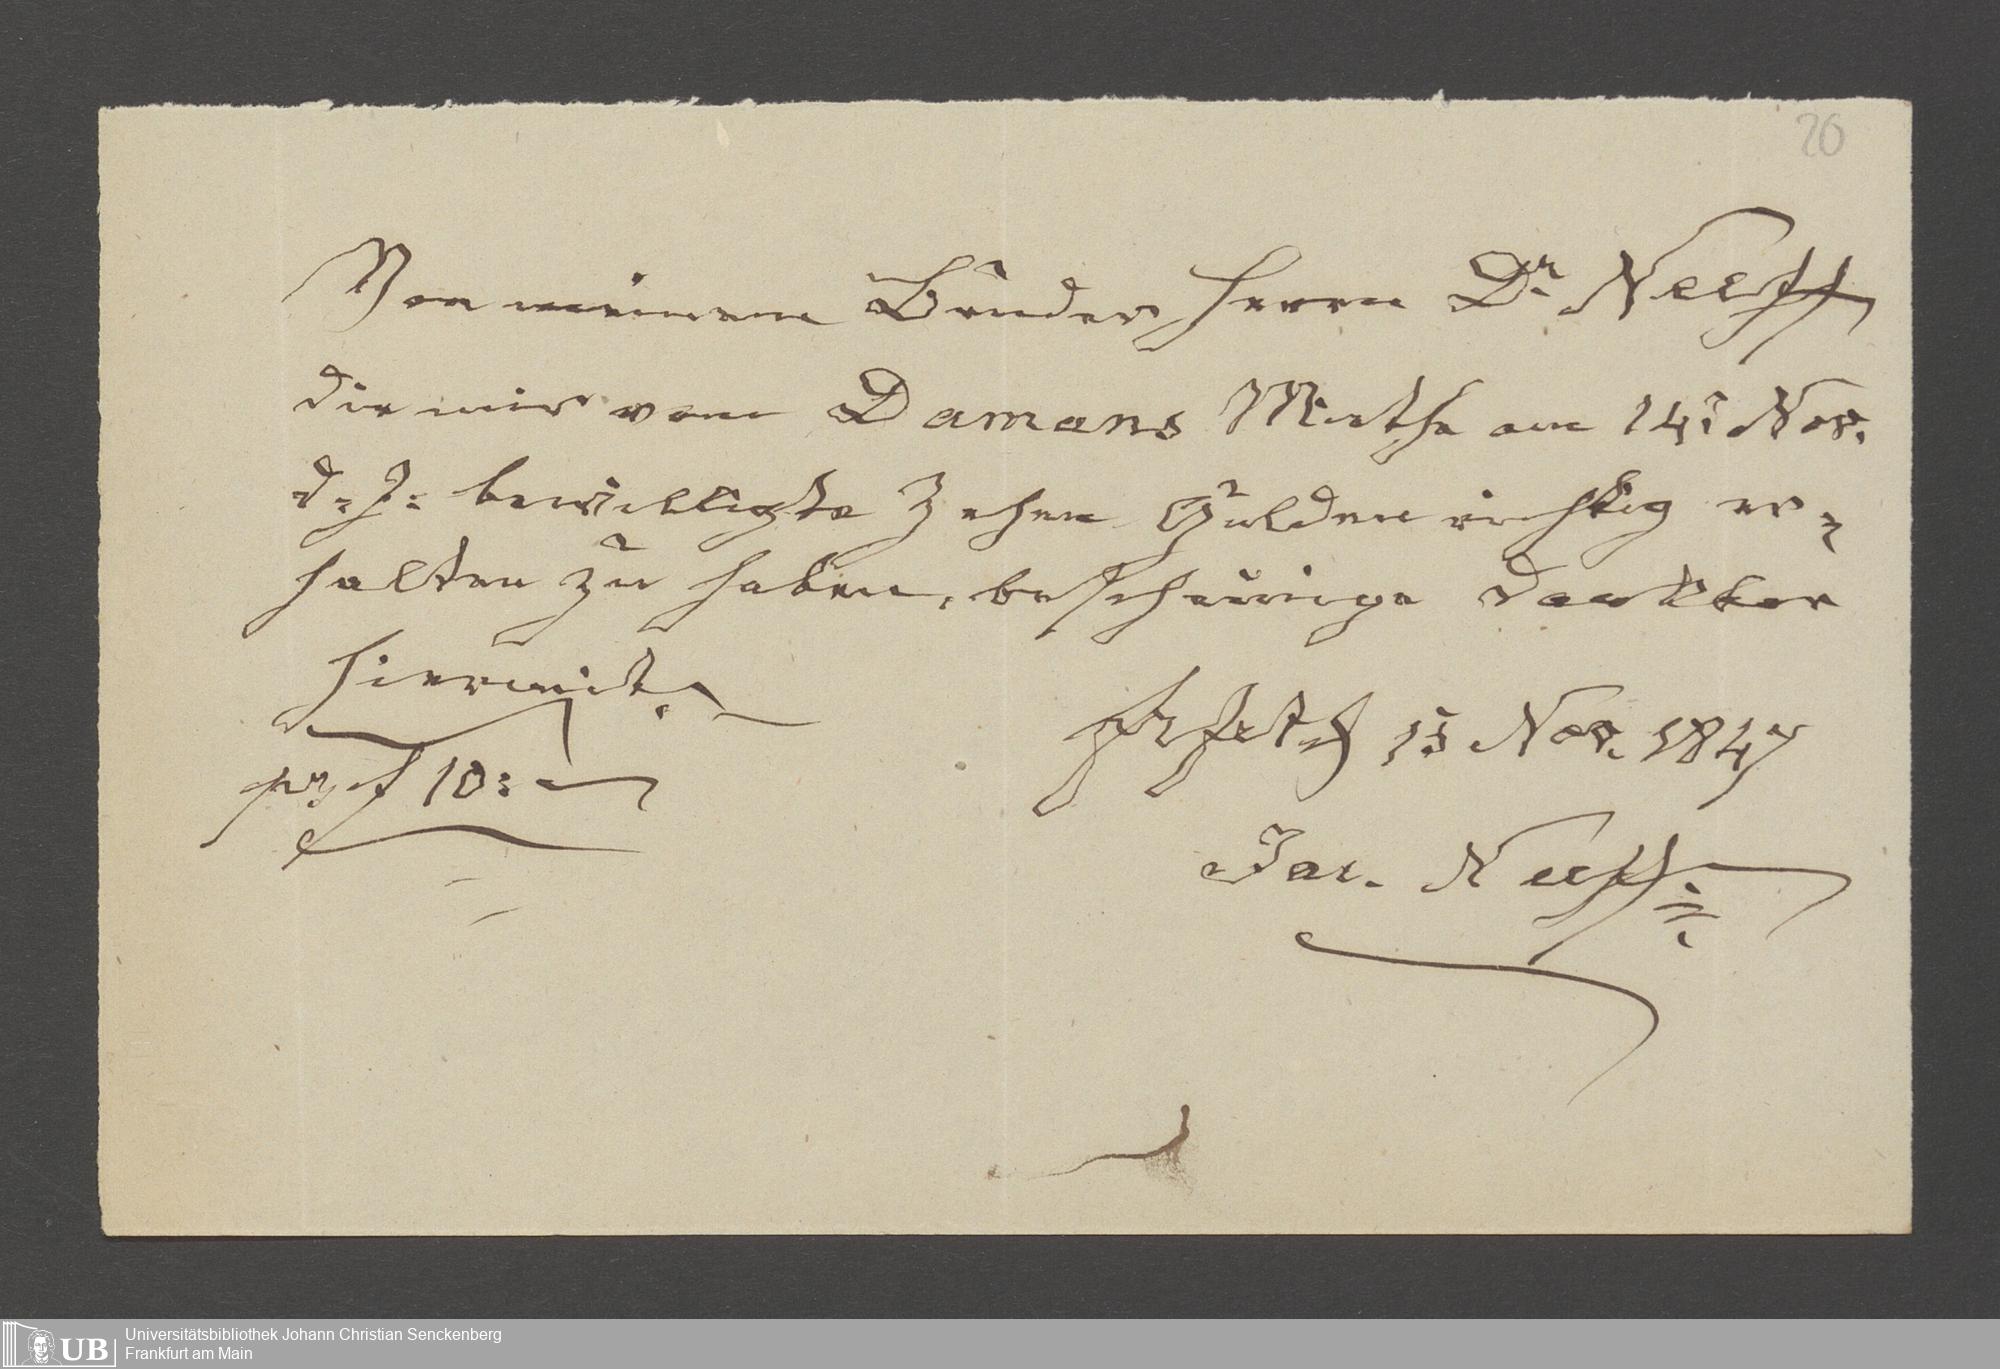 20
Von meinem Bruder Herrn Dr. Neeff
die mir vom Damans am 14t Nov.
d. J. bewilligte Zehen Gulden richtig er-
halten zu haben, bescheinige dankbar
hiermit.
Frkft 15 Nov. 1847
pr f 10:—
Jac. Neeff
UB
Universitätsbibliothek Johann Christian Senckenberg
Frankfurt am Main